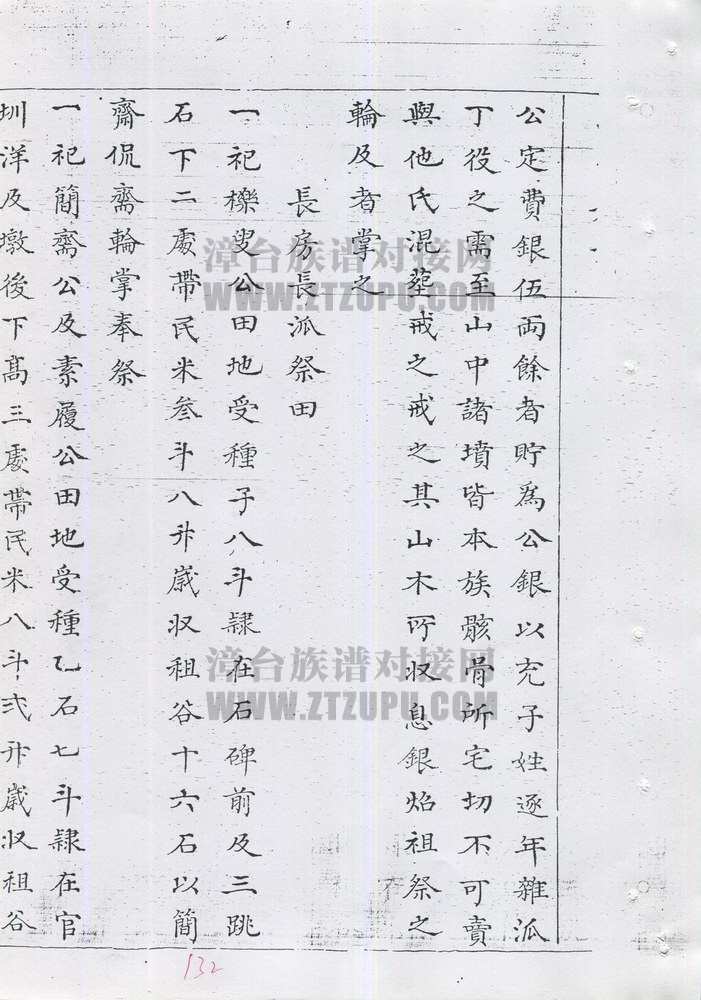 公定費銀伍両餘者貯爲公銀以充子姓逐年雜派
丁役之需至山中諸墳皆本族骸骨所宅切不可賣
與他氏混塟戒之戒之其山木所収息銀焰祖祭之
輪及者掌之
長房長派祭田
一祀櫟叟公田地受種子八斗隷在石碑前及三跳
石下二處帶民米叁斗八升歲収租谷十六石以簡
齋侃齋輪掌奉祭
一祀簡齋公及素履公田地受種乙石七斗隷在官
圳洋及墩後下髙三處帶民米八斗弍升歲収租谷
漳台族谱对接网
WWW.ZTZUPU.COM
漳台族谱对接网
WWW.ZTZUPU.COM
132